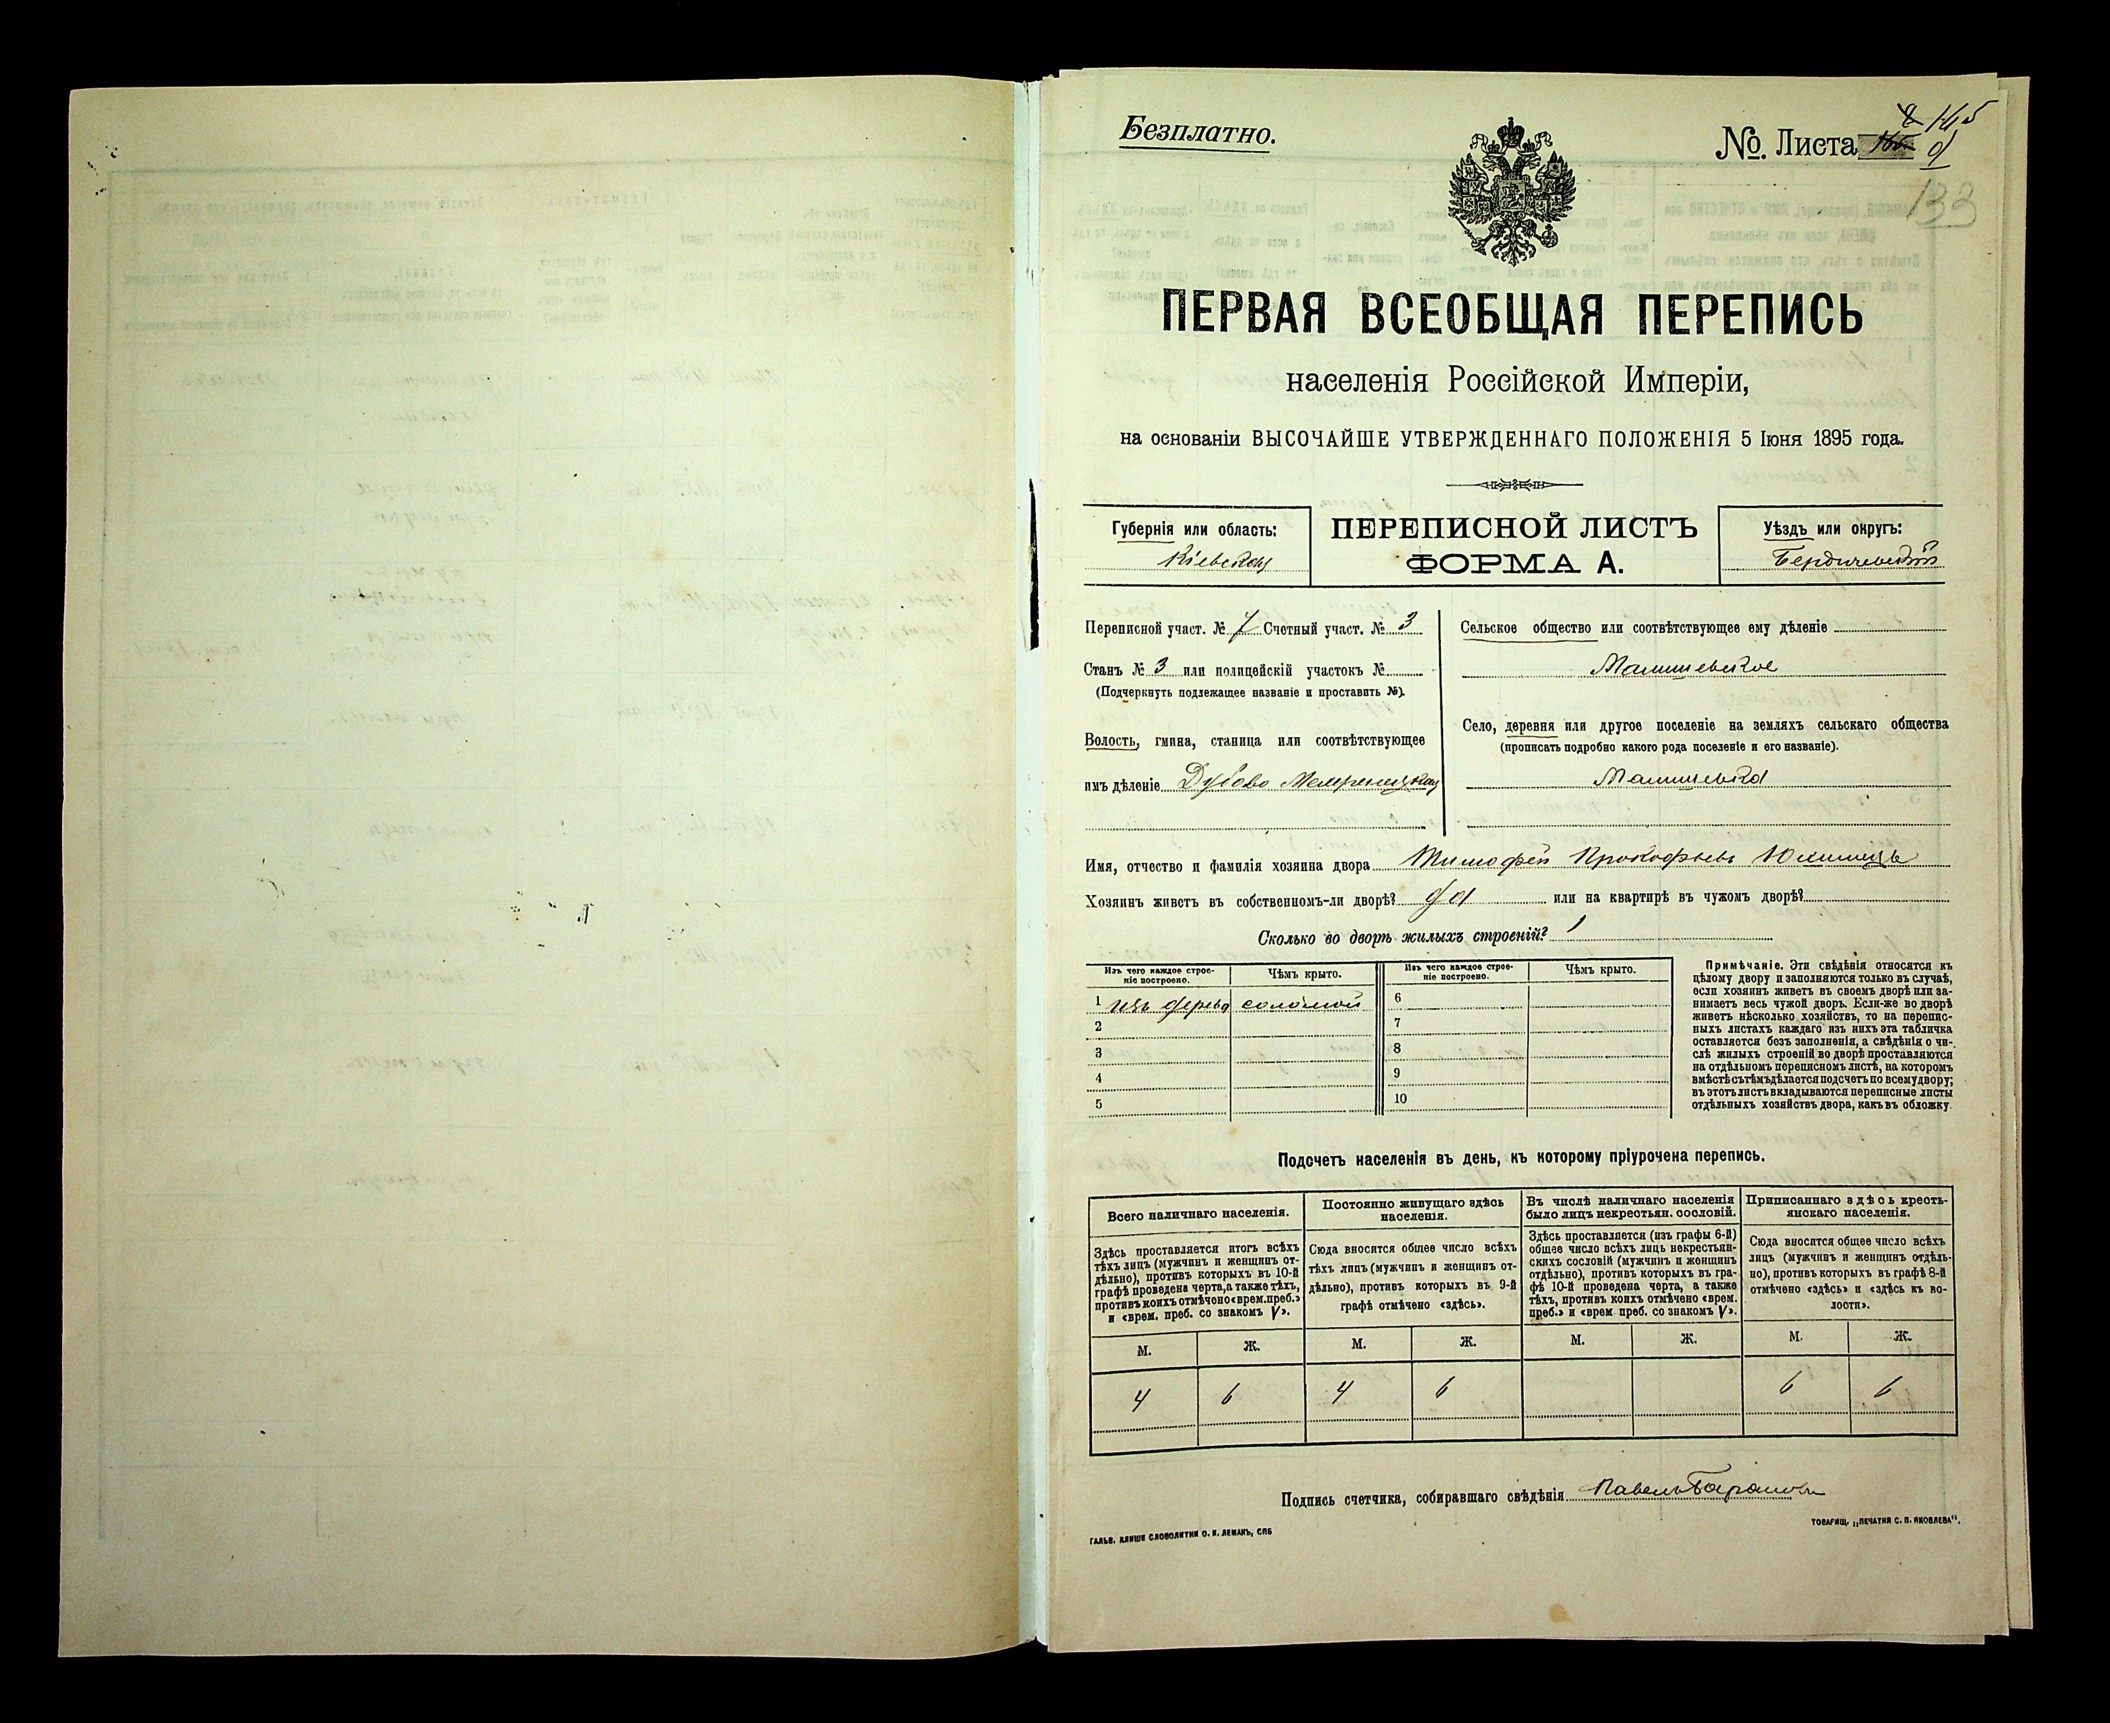 Безплатно.
№. Листа
133
ПЕРВАЯ ВСЕОБЩАЯ ПЕРЕПИСЬ
населенія Россійской Имперіи,
на основаніи ВЫСОЧАЙШЕ УТВЕРЖДЕННАГО ПОЛОЖЕНІЯ 5 Іюня 1895 года.
Губернія или область:
Кіевская
ПЕРЕПИСНОЙ ЛИСТЪ
ФОРМА А.
Уѣздъ или округъ:
Бердичевскій
Переписной участ. № 7 Счетный участ. № 3
Станъ № 3 или полицейскій участокъ №
(Подчеркнуть подлежащее названіе и проставить №).
Волость, гмина, станица или соотвѣтствующее
имъ дѣленіе Дубово
Сельское общество или соотвѣтствующее ему дѣленіе
Малишевское
Село, деревня или другое поселеніе на земляхъ сельскаго общества
(прописать подробно какого рода поселеніе и его названіе).
Малишевка
Имя, отчество и фамилія хозяина двора Тимофей Прокофьевъ
Хозяинъ живетъ въ собственномъ-ли дворѣ? да или на квартирѣ въ чужомъ дворѣ?
Сколько во дворѣ жилыхъ строеній? 1
Изъ чего каждое строе-
ніе построено.
Чѣмъ крыто.
1 изъ дерева соломой
2
3
4
5
Изъ чего каждое строе-
ніе построено.
Чѣмъ крыто.
6
7
8
9
10
Примѣчаніе. Эти свѣдѣнія относятся къ
цѣлому двору и заполняются только въ случаѣ,
если хозяинъ живетъ въ своемъ дворѣ или за-
нимаетъ весь чужой дворъ. Если-же во дворѣ
живетъ нѣсколько хозяйствъ, то на перепис-
ныхъ листахъ каждаго изъ нихъ эта табличка
оставляется безъ заполненія, а свѣдѣнія о чи-
слѣ жилыхъ строеній во дворѣ проставляются
на отдѣльномъ переписномъ листѣ, на которомъ
вмѣстѣ съ тѣмъ дѣлается подсчетъ по всему двору;
въ этотъ листъ вкладываются переписные листы
отдѣльныхъ хозяйствъ двора, какъ въ обложку.
Подсчетъ населенія въ день, къ которому пріурочена перепись.
Всего наличнаго населенія.
Здѣсь проставляется итогъ всѣхъ
тѣхъ лицъ (мужчинъ и женщинъ от-
дѣльно), противъ которыхъ въ 10-й
графѣ проведена черта, а также тѣхъ,
противъ коихъ отмѣчено «врем. преб.»
и «врем. преб. со знакомъ V».
М. Ж.
4 6
Постоянно живущаго здѣсь
населенія.
Сюда вносится общее число всѣхъ
тѣхъ лицъ (мужчинъ и женщинъ от-
дѣльно), противъ которыхъ въ 9-й
графѣ отмѣчено «здѣсь».
М. Ж.
4 6
Въ числѣ наличнаго населенія
было лицъ некрестьян. сословій.
Здѣсь проставляется (изъ графы 6-й)
общее число всѣхъ лицъ некрестьян-
скихъ сословій (мужчинъ и женщинъ
отдѣльно), противъ которыхъ въ гра-
фѣ 10-й проведена черта, а также
тѣхъ, противъ коихъ отмѣчено «врем.
преб.» и «врем преб. со знакомъ V».
М. Ж.
Приписаннаго здѣсь кресть-
янскаго населенія.
Сюда вносится общее число всѣхъ
лицъ (мужчинъ и женщинъ отдѣль-
но), противъ которыхъ въ графѣ 8-й
отмѣчено «здѣсь» и «здѣсь къ во-
лости».
М. Ж.
6 6
Подпись счетчика, собиравшаго свѣдѣнія Павелъ
ГАЛЬВ. КЛИШЕ СЛОВОЛИТНИ О. И. ЛЕМАНЪ, СПБ
ТОВАРИЩ. „ПЕЧАТНЯ С. П. ЯКОВЛЕВА".